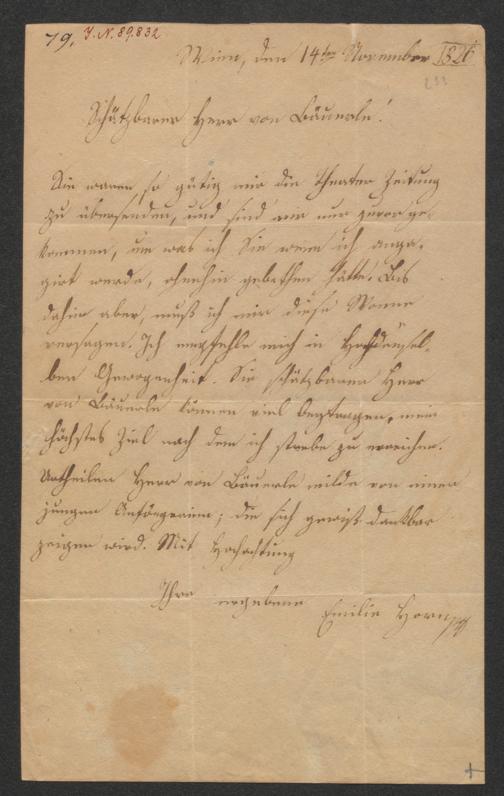 79. J.N. 89.832
Wien, den 14ten November 1826
233
Schätzbarer Herr von Bäuerle!
Sie waren so gütig mir die Theater Zeitung
zu übersenden, und sind mir nur zuvor ge-
kommen, um was ich Sie wenn ich enga-
girt werde, ohnehin gebethen hätte. Bis
dahin aber, muß ich mir diese Wonne
versagen. Ich empfehle mich in Hochdensel-
ben Gewogenheit. Sie schätzbarer Herr
von Bäuerle können viel beytragen, mein
höchstes Ziel nach dem ich strebe zu erreichen.
Urtheilen Herr von Bäuerle milde von einer
jungen Anfängerinn; die sich gewiß dankbar
zeigen wird. Mit Hochachtung
Ihre ergebene
Emilie Horn